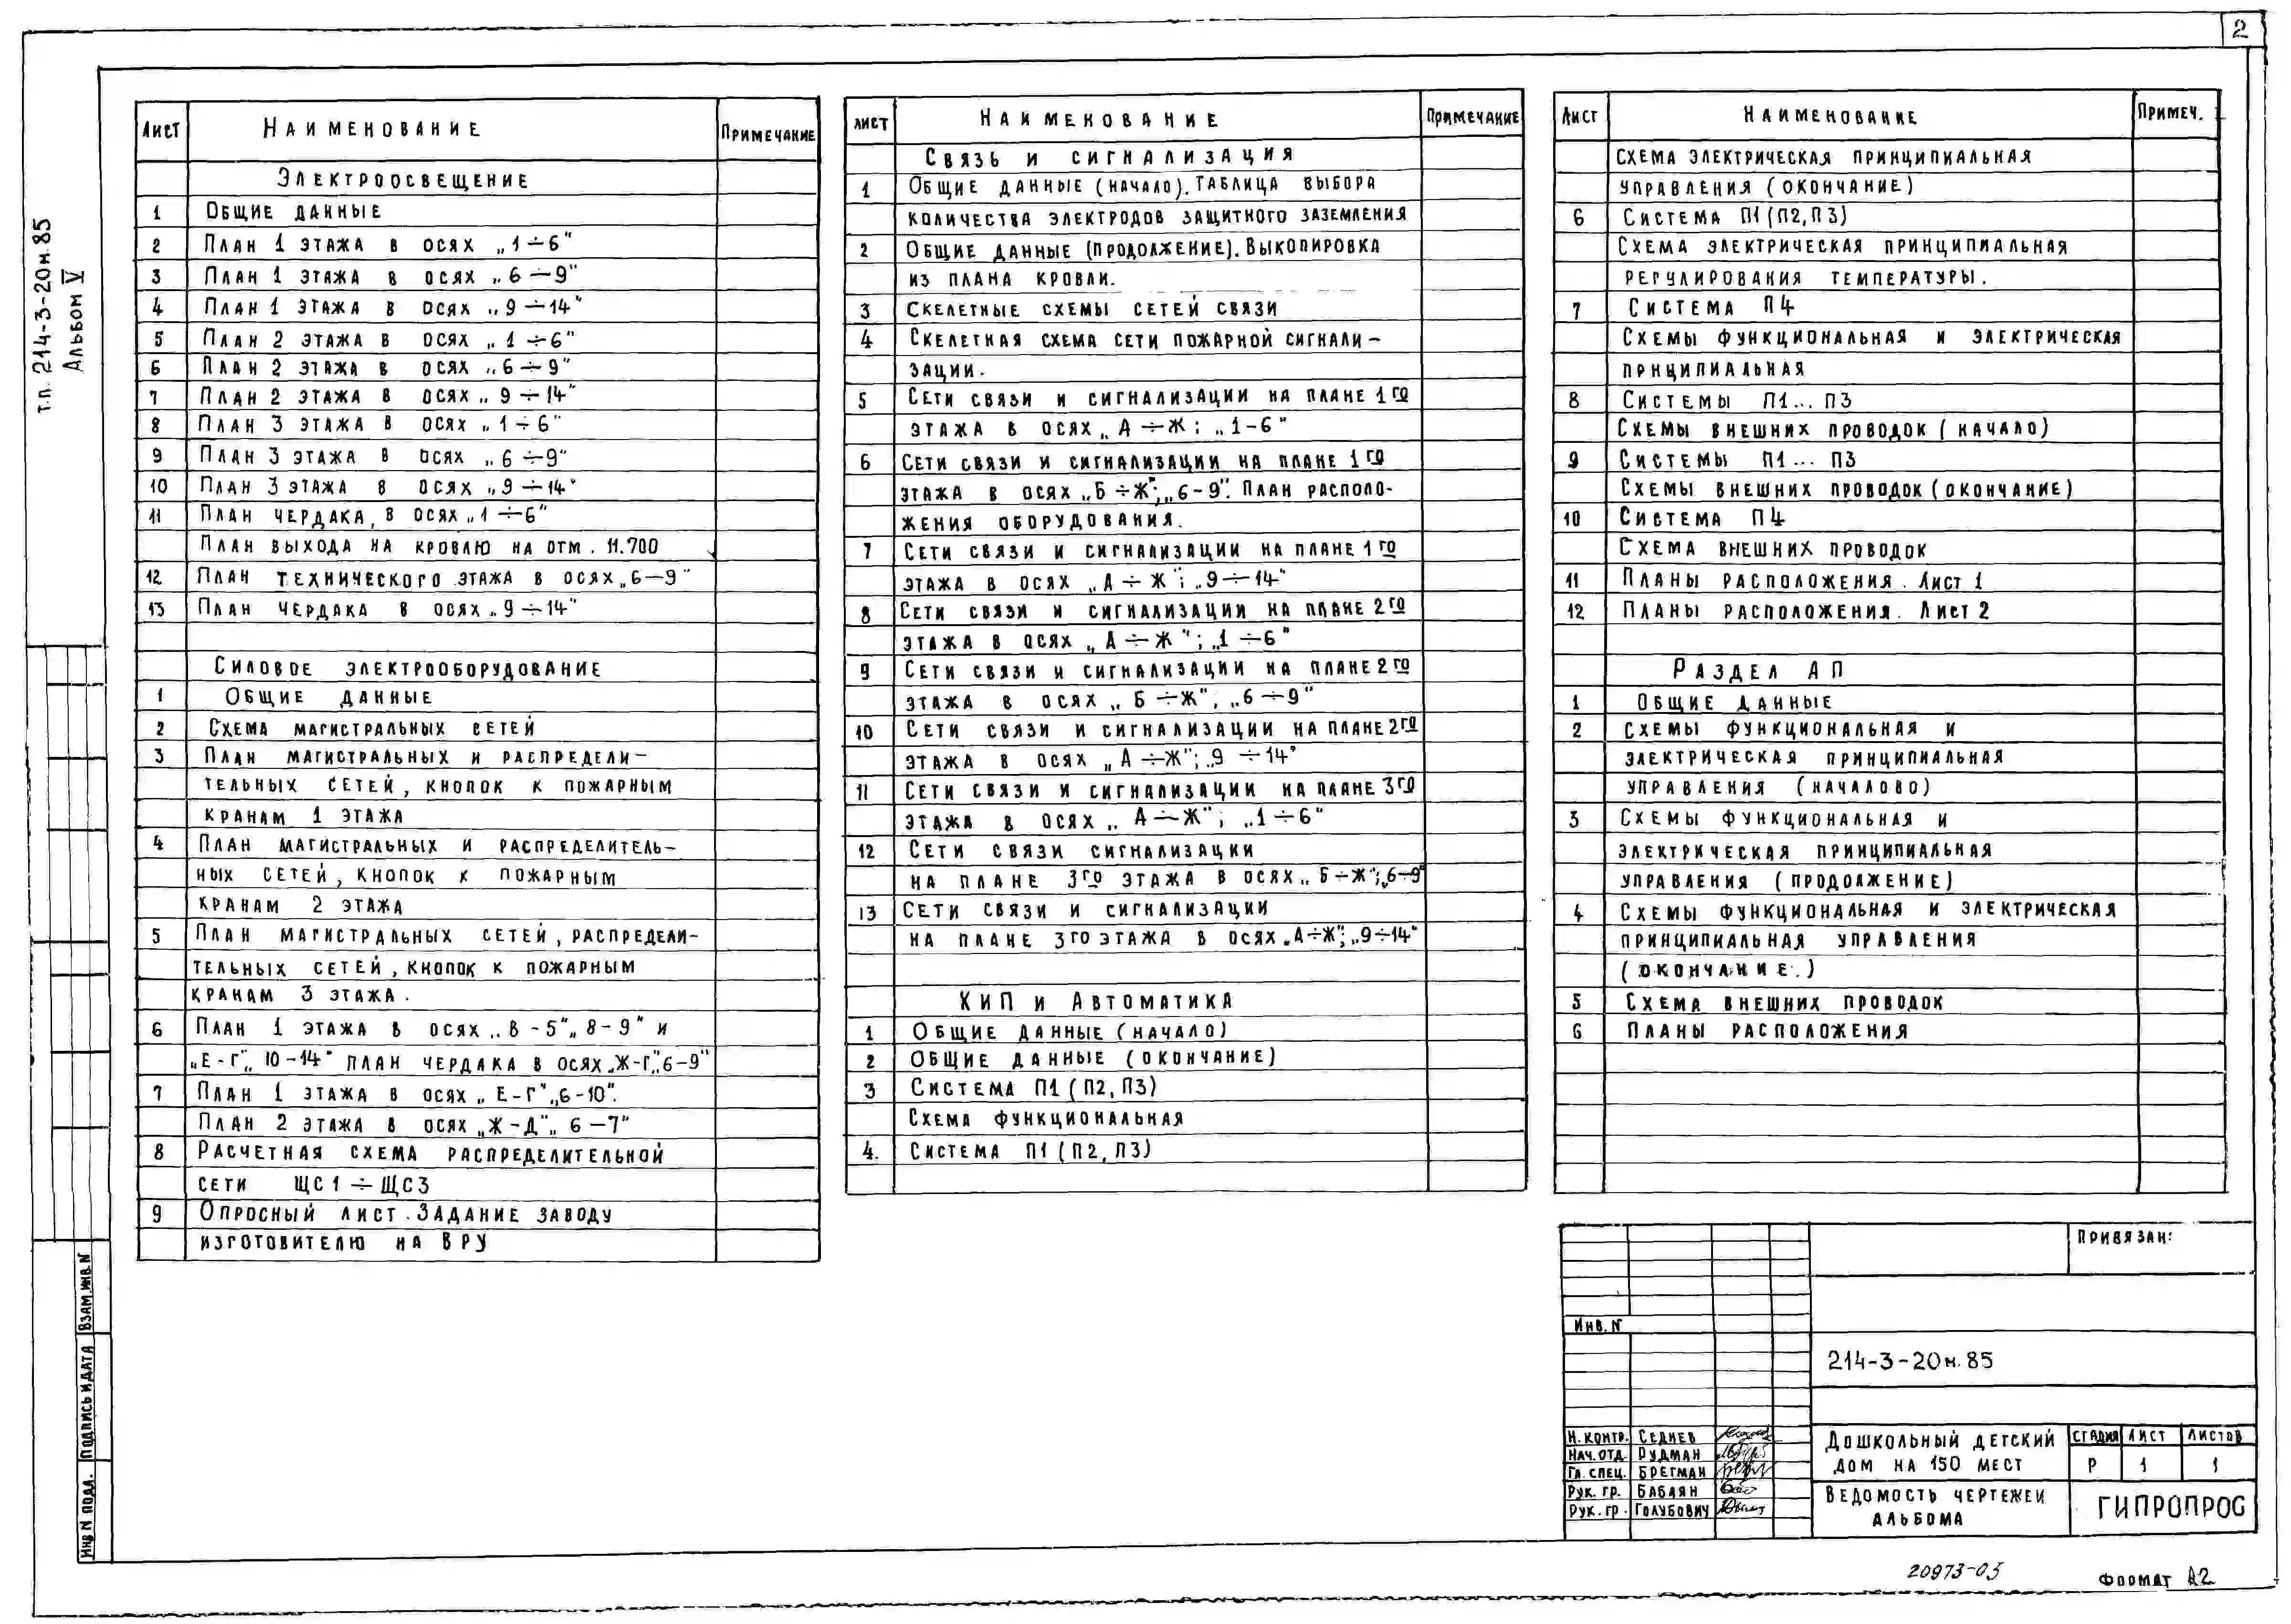 2
т.п. 214-3-20м.85
Альбом V
Лист Наименование Примечание
Электроосвещение
1 Общие данные
2 План 1 этажа в осях „1÷6"
3 План 1 этажа в осях „6÷9"
4 План 1 этажа в осях „9÷14"
5 План 2 этажа в осях „1÷6"
6 План 2 этажа в осях „6÷9"
7 План 2 этажа в осях „9÷14"
8 План 3 этажа в осях „1÷6"
9 План 3 этажа в осях „6÷9"
10 План 3 этажа в осях „9÷14"
11 План чердака, в осях „1÷6"
План выхода на кровлю на отм. 11.700
12 План технического этажа в осях „6—9"
13 План чердака в осях „9÷14"
Силовое электрооборудование
1 Общие данные
2 Схема магистральных сетей
3 План магистральных и распредели-
тельных сетей, кнопок к пожарным
кранам 1 этажа
4 План магистральных и распределитель-
ных сетей, кнопок к пожарным
кранам 2 этажа
5 План магистральных сетей, распредели-
тельных сетей, кнопок к пожарным
кранам 3 этажа.
6 План 1 этажа в осях „В-5"„8-9" и
„Е-Г"„10-14" план чердака в осях „Ж-Г"„6-9"
7 План 1 этажа в осях „Е-Г"„6-10".
План 2 этажа в осях „Ж-Д"„6—7"
8 Расчетная схема распределительной
сети ЩС1÷ЩС3
9 Опросный лист. Задание заводу
изготовителю на ВРУ
Лист Наименование Примечание
Связь и сигнализация
1 Общие данные (начало). Таблица выбора
количества электродов защитного заземления
2 Общие данные (продолжение). Выкопировка
из плана кровли.
3 Скелетные схемы сетей связи
4 Скелетная схема сети пожарной сигнали-
зации.
5 Сети связи и сигнализации на плане 1го
этажа в осях „А÷Ж; „1-6"
6 Сети связи и сигнализации на плане 1го
этажа в осях „Б÷Ж"; „6-9". План располо-
жения оборудования.
7 Сети связи и сигнализации на плане 1го
этажа в осях „А÷Ж"; „9÷14"
8 Сети связи и сигнализации на плане 2го
этажа в осях „А÷Ж"; „1÷6"
9 Сети связи и сигнализации на плане 2го
этажа в осях „Б÷Ж", „6÷9"
10 Сети связи и сигнализации на плане 2го
этажа в осях „А÷Ж"; „9÷14"
11 Сети связи и сигнализации на плане 3го
этажа в осях „А÷Ж"; „1÷6"
12 Сети связи сигнализации
на плане 3го этажа в осях „Б÷Ж"; „6÷9"
13 Сети связи и сигнализации
на плане 3го этажа в осях „А÷Ж"; „9÷14"
КИП и Автоматика
1 Общие данные (начало)
2 Общие данные (окончание)
3 Система П1 (П2, П3)
Схема функциональная
4. Система П1 (П2, П3)
Лист Наименование Примеч.
Схема электрическая принципиальная
управления (окончание)
6 Система П1 (П2, П3)
Схема электрическая принципиальная
регулирования температуры.
7 Система П4
Схемы функциональная и электрическая
прнципиальная
8 Системы П1... П3
Схемы внешних проводок (начало)
9 Системы П1... П3
Схемы внешних проводок (окончание)
10 Система П4
Схема внешних проводок
11 Планы расположения. Лист 1
12 Планы расположения. Лист 2
Раздел АП
1 Общие данные
2 Схемы функциональная и
электрическая принципиальная
управления (началово)
3 Схемы функциональная и
электрическая принципиальная
управления (продолжение)
4 Схемы функциональная и электрическая
принципиальная управления
(окончание.)
5 Схема внешних проводок
6 Планы расположения
Привязан:
Инв. N
214-3-20м.85
Н. контр. Седнев
Нач. отд. Рудман
Гл. спец. Брегман
Рук. гр. Бабаян
Рук. гр. Голубович
Дошкольный детский
дом на 150 мест
Стадия Лист Листов
Р 1 1
Ведомость чертежей
альбома
ГИПРОПРОС
Взам. инв. N
Подпись и дата
Инв N подл.
20973-05
Формат А2